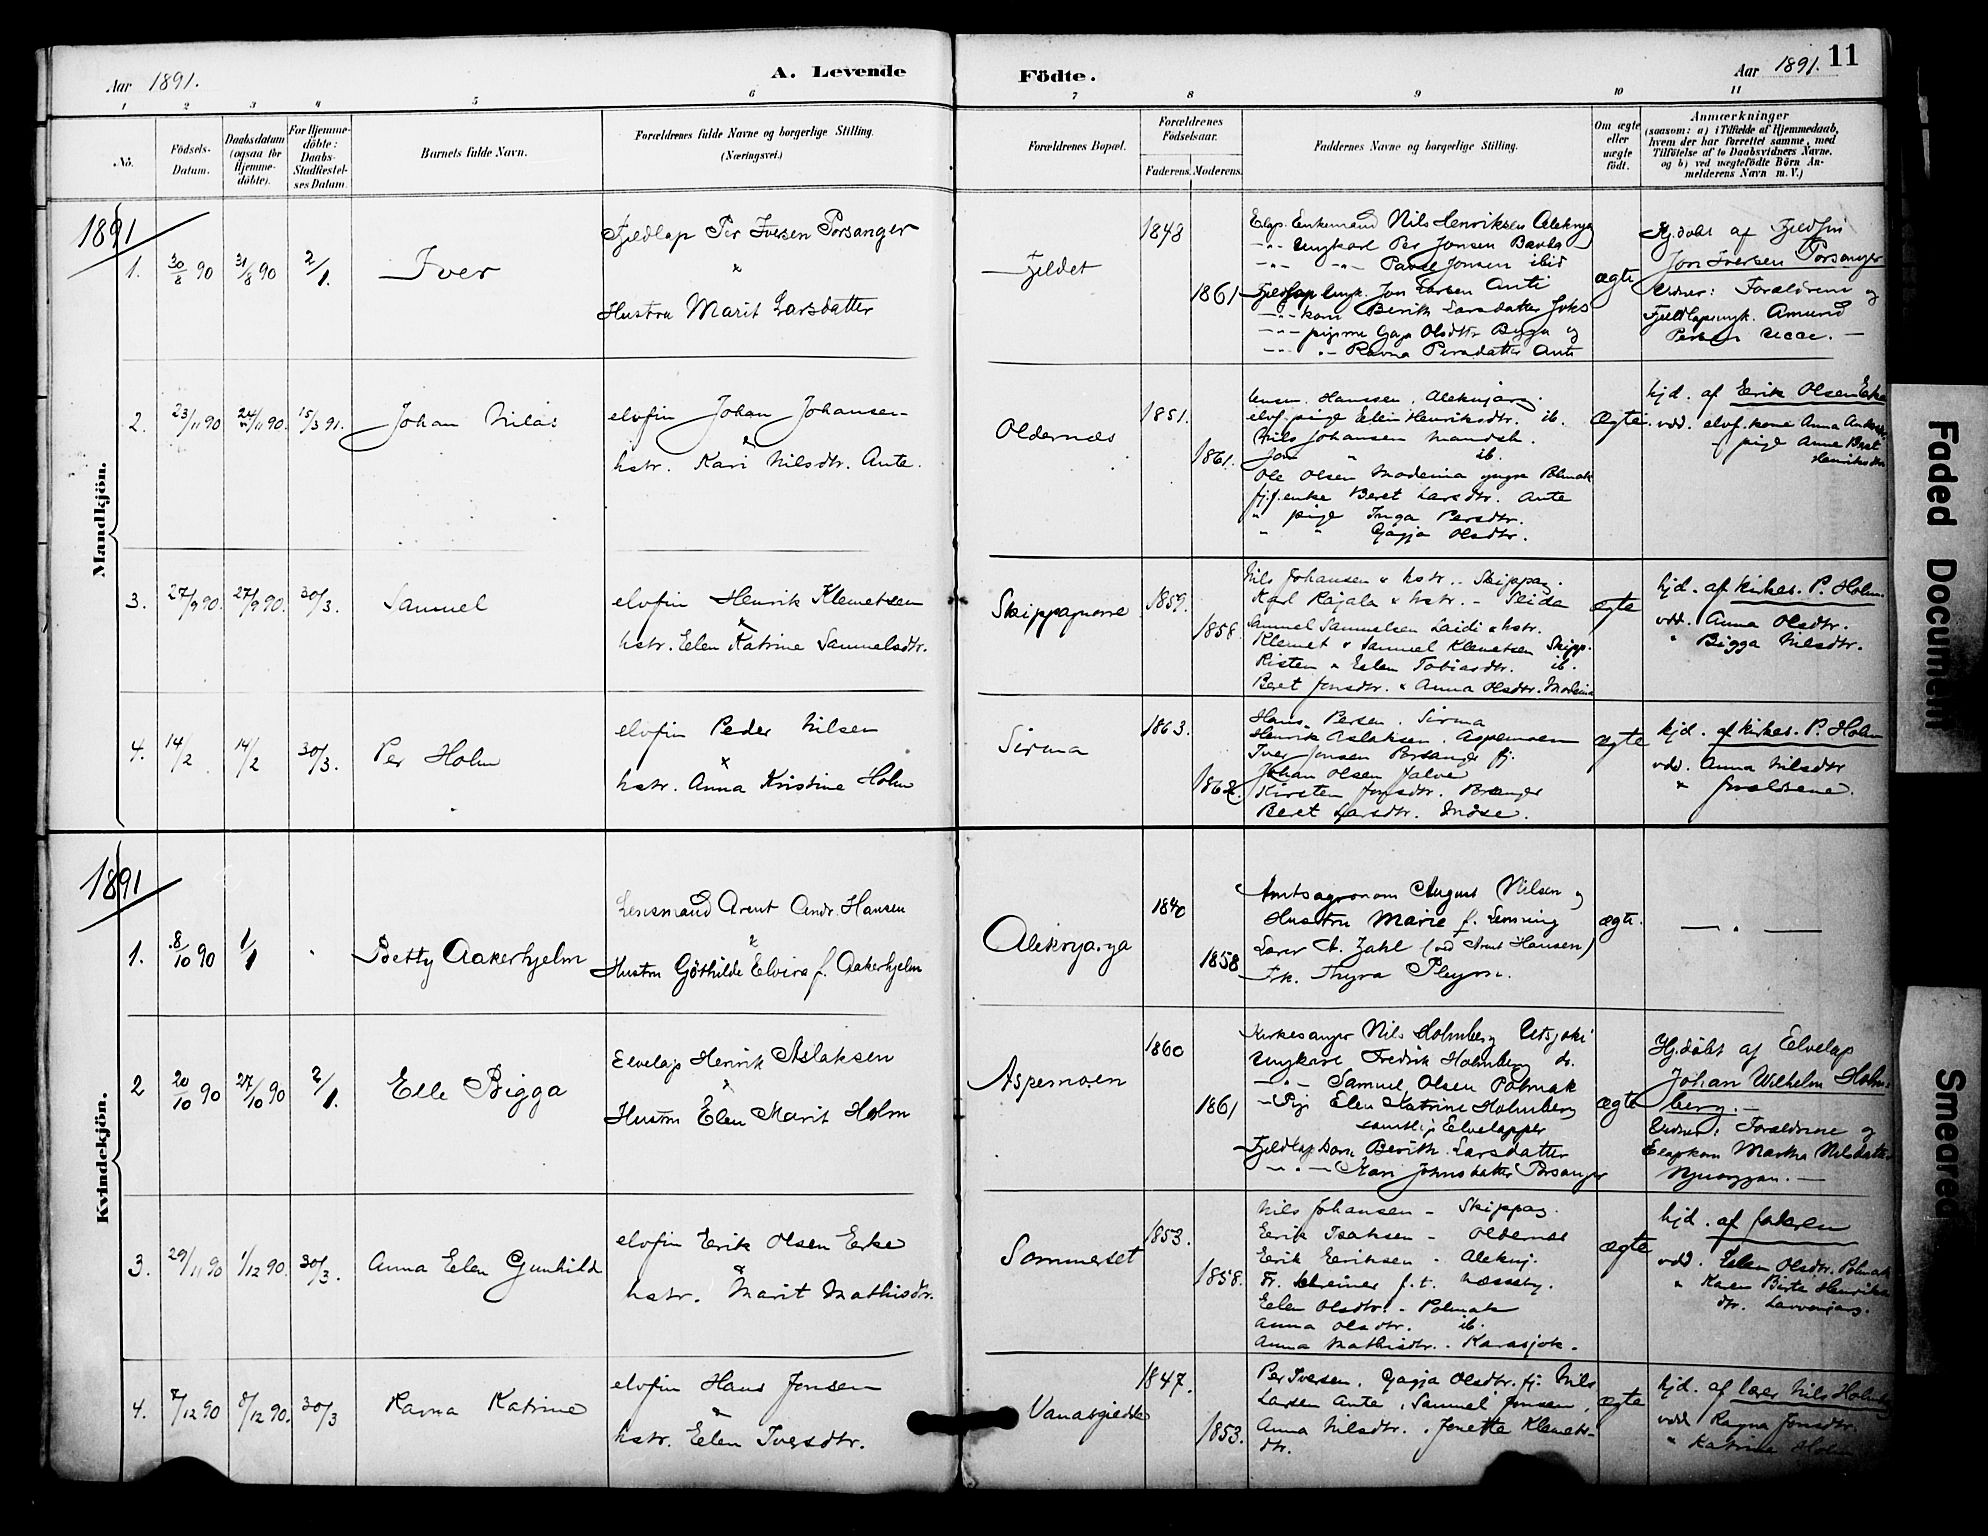 Aar 1891.
A. Levende
Födte.
Aar 1891.
11
1 2 3 4 5 6 7 8 9 10 11
No.
Födsels-
Datum.
Daabsdatum
(ogsaa for
Hjemme-
döbte).
For Hjemme-
döbte:
Daabs-
Stadfæstel-
ses Datum.
Barnets fulde Navn.
Forældrenes fulde Navne og borgerlige Stilling.
(Næringsvei.)
Forældrenes Bopæl.
Forældrenes
Födselsaar.
Faderens. Moderens.
Faddernes Navne og borgerlige Stilling.
Om ægte
eller
uægte
födt.
Anmærkninger
(saasom: a) i Tilfælde af Hjemmedaab,
hvem der har forrettet samme, med
Tilföielse af to Daabsvidners Navne.
og b) ved uægtefödte Börn An-
melderens Navn m. V.)
Mandkjön.
1891
1. 30/8 90 31/8 90 2/1.
Iver
Fjeldlap Per Iversen Porsanger
Hustru Marit Larsdatter
Fjeldet
1848
1861
Elap. Enkemand Nils Henriksen Aleknjarg
Ungkarl Per Jonsen Bavla
Pavel Jonsen ibid
Fjeldlap Ungk. Jon Larsen Anti
kone Berith Larsdatter Joks
pigerne Gaga Olsdtr Bigga og
Ravna Persdatter Anti
ægte
Hj.döbt af Fjeldfin
Jon Iversen Porsanger
Vidner: Forældrene og
Fjeldlapungk. Amund
Persen Ucce.
2. 23/11 90 24/11 90. 15/3 91.
Johan Nilas
elvfin Johan Johansen
&
hstr. Kari Nilsdtr. Ante.
Oldernæs
1851.
1861.
Hanssen, Aleknjarg.
elvf. pige Elen Henriksdtr. ib.
Nils Johansen Mandsh.
Jon " ib.
Ole Olsen Modeina yngre Polmak
fj.f. enke Beret Larsdtr. Ante
" pige Inga Persdtr.
" " Gagja Olsdtr.
Ægte.
hjd. af Erik Olsen Erke
vdd. elvf. kone Anna
pige Anna Beret
Henriksdtr
3. 27/9 90. 27/9 90. 30/3.
Samuel
elvfin Henrik Klemetsen
&
hstr. Elen Katrine Samuelsdtr.
Skippagurre
1859.
1858.
Nils Johansen & hstr. - Skippag.
Karl Rajala & hstr. - Seida
Samuel Samuelsen Laidi & hstr.
Klemet & Samuel Klemetsen Skipp.
Risten & Elen Tobiasdtr. ib.
Beret Jonsdtr. & Anna Olsdtr. Modeina
ægte
hjd. af kirkes. P. Holm.
vdd. Anna Olsdtr.
" Bigga Nilsdtr.
4. 14/2 14/2 30/3.
Per Holm
elvfin Peder Nilsen
&
hstr. Anna Kristine Holm
Sirma
1863.
1862.
Hans Persen. Sirma
Henrik Aslaksen. Aspemoen
Iver Jonsen Porsanger fj.
Johan Olsen Jalve
Kirsten Jonsdtr. Pranger
Beret Larsdtr. Inose.
ægte
hjd. af kirkes. P. Holm
vdd. Anna Nilsdtr
" forældrene.
Kvindekjön.
1891
1. 8/10 90 1/1
Betty Aakerhjelm
Lensmand Arent Andr. Hansen
&
Hustru Göthilde Elvira f. Aakerhjelm
Aleknjarga
1840
1858
Amtsagronom August Nilsen og
Hustru Marie f. Lemning
Lærer A. Zahl (ved Arent Hansen)
Frk. Thyra Pleym.
ægte.
2 20/10 90 27/10 90 2/1.
Elle Bigga
Elvelap Henrik Aslaksen
Hustru Elen Marit Holm
Aspemoen
1860
1861
Kirkesanger Nils Holmberg Utsjoki
Ungkarl Fredrik Holmberg do.
Samuel Olsen Polmak
Pige Elen Katrine Holmberg
samtlige Elvelapper
Fjeldlap kone Berith Larsdatter
Mari Johnsdatter Porsanger
ægte
Hj.döbt af Elvelap
Johan Wilhelm Holm-
berg.
Vidner: Forældrene og
Elapkone Martha Nilsdatter
3. 29/11 90 1/12 90. 30/3.
Anna Elen Gunhild
elvfin Erik Olsen Erke
&
hstr. Marit Mathisdtr.
Sommerset
1853.
1858.
Nils Johansen - Skippag.
Erik Isaksen - Oldernæs
Erik Eriksen - Aleknj.
Fr. Schreiner f.t. Næsseby.
Elen Olsdtr. - Polmak
Anna Olsdtr. ib.
Anna Mathisdtr. - Karasjok.
ægte
hjd. af faderen
vdd. Elen Olsdtr. Polmak
" Karen Birte Henriks-
dtr. Lævvenjarg.
4. 7/12 90 8/12 90. 30/3
Ravna Katrine
elvfin Hans Jonsen
&
hstr. Elen Iversdtr.
Vanasgiedde
1847.
1853.
Per Iversen. Gagja Olsdtr. fj. Nils
Larsen Ante, Samuel Jonsen,
Anna Nilsdtr., Jenette Klemets-
dtr.
ægte
hjd. af lærer Nils Holmb.
vdd Ragna Jonsdtr.
" Katrina Holm
Faded Document
Smeared